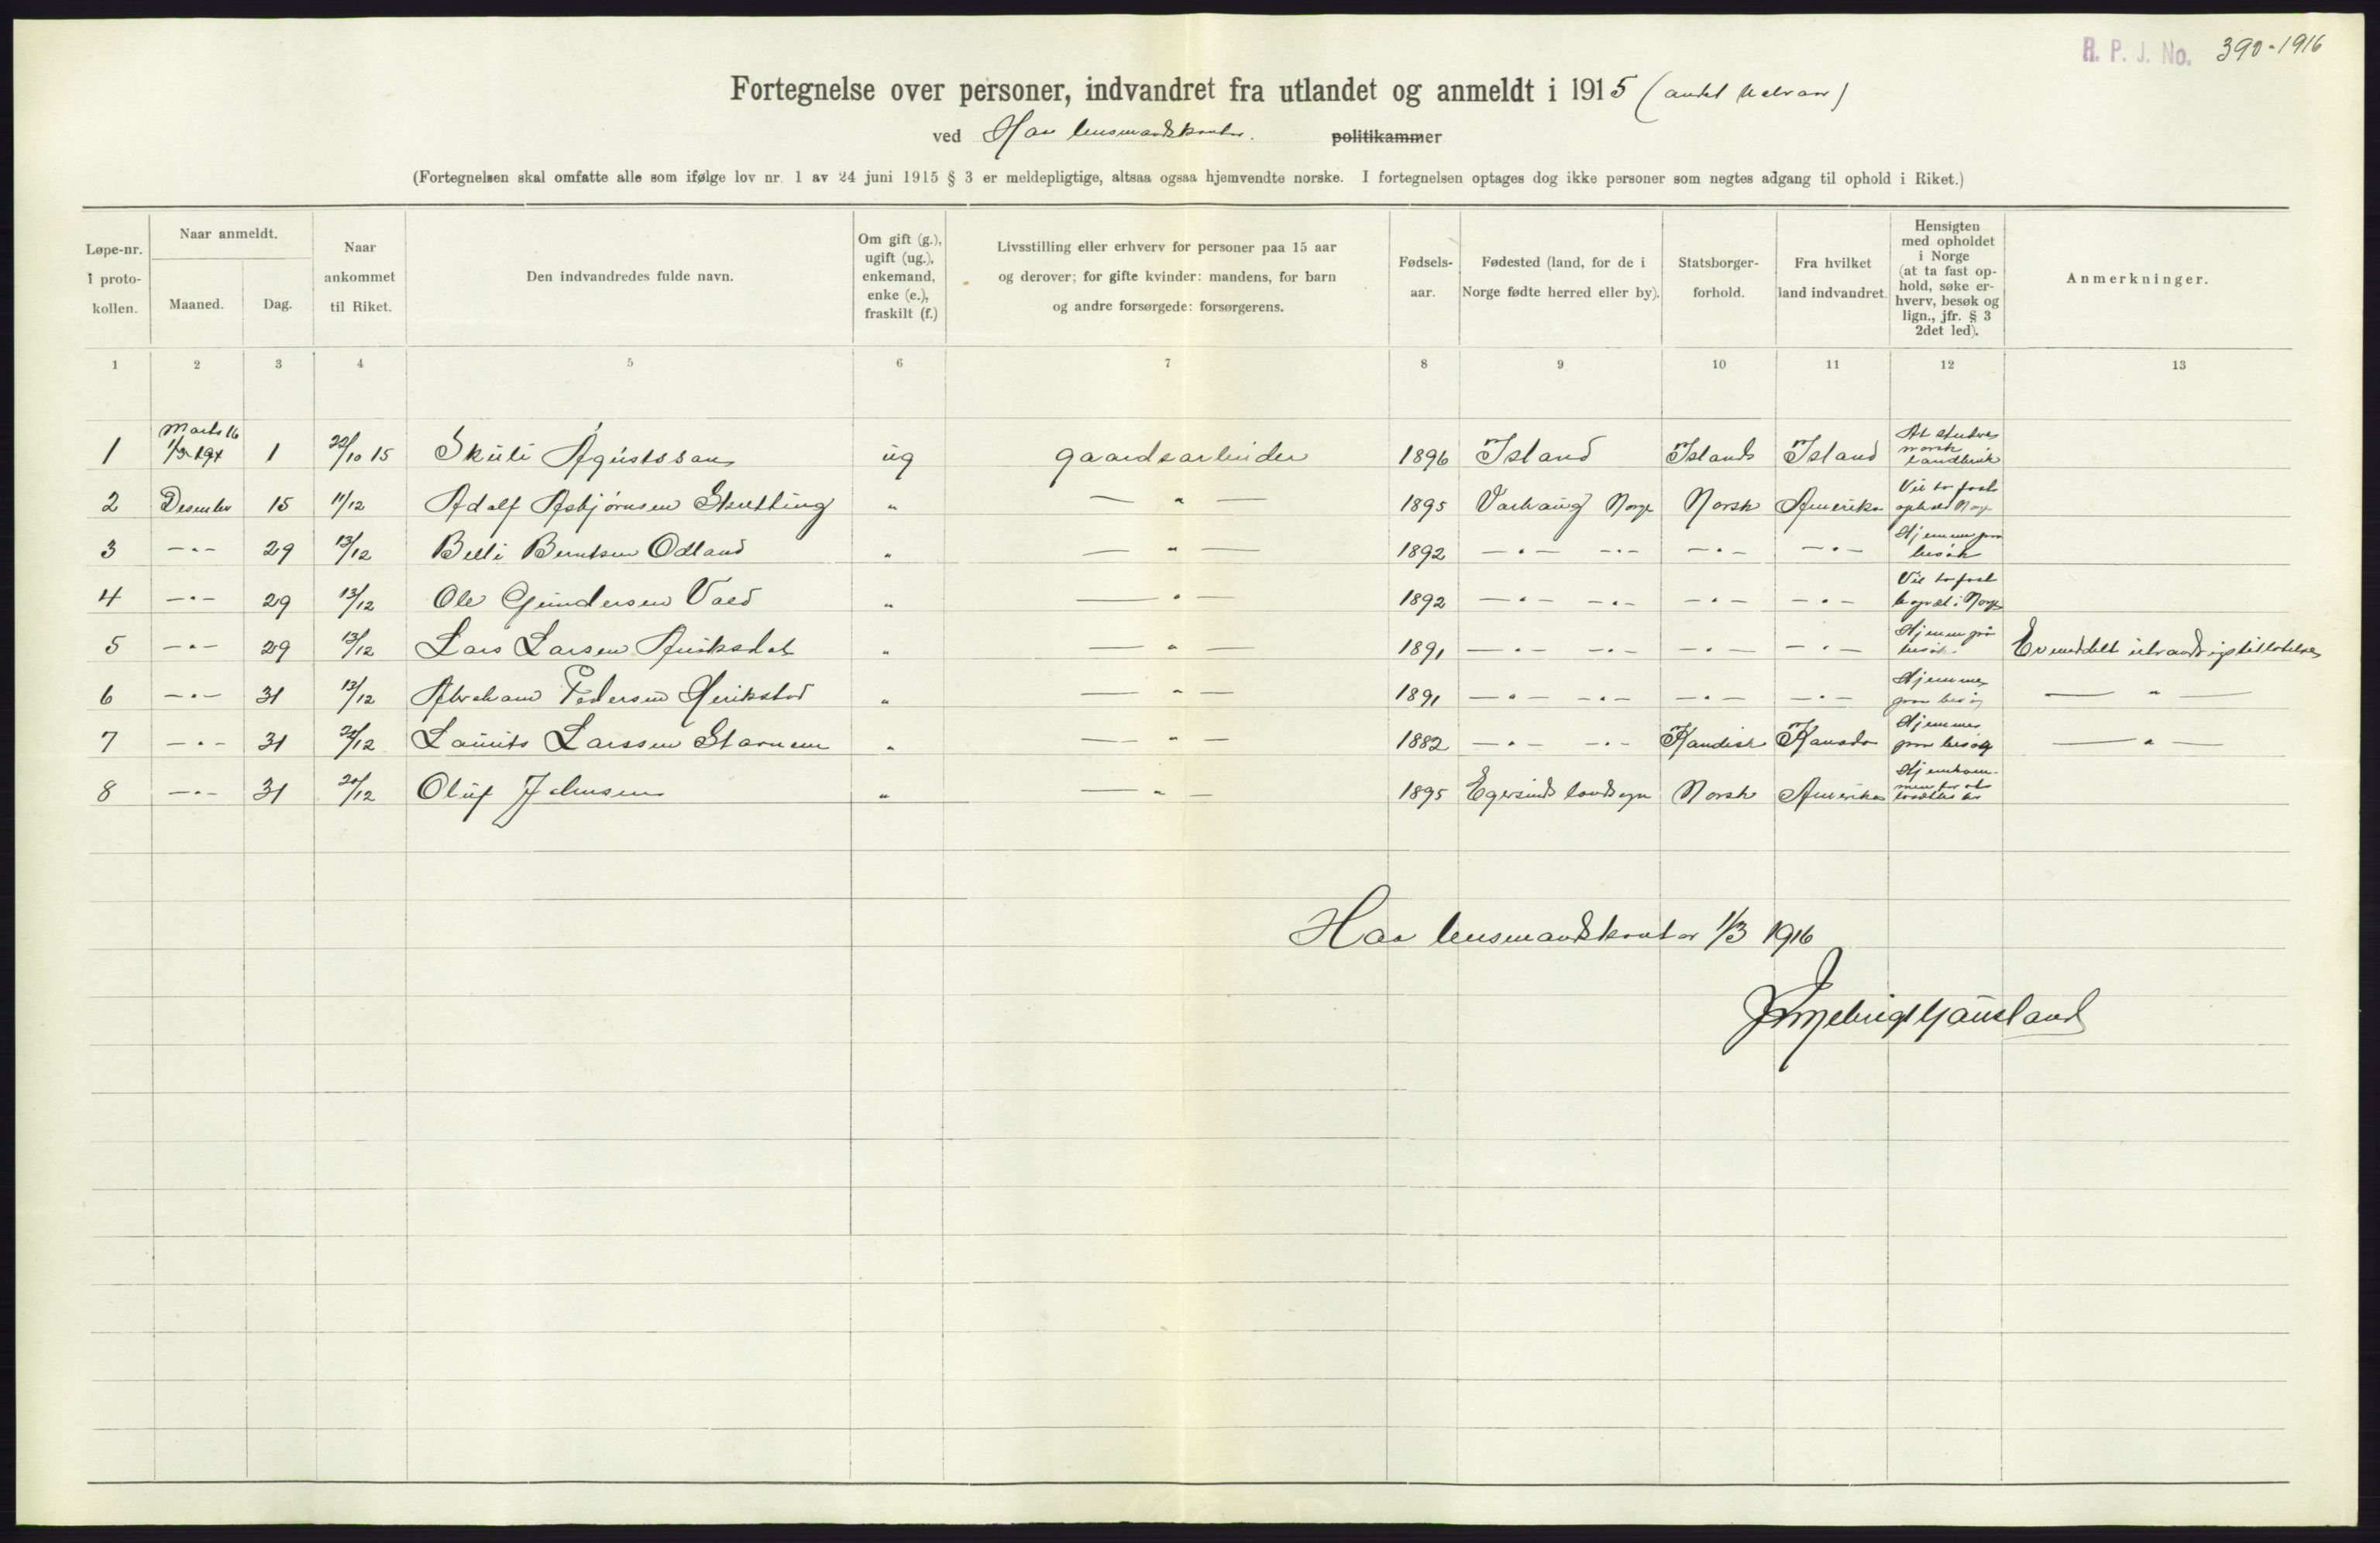 R. P. J. No. 390-1916
Fortegnelse over personer, indvandret fra utlandet og anmeldt i 1915 (andet halvaar)
ved Haa lensmandskontor. politikammer
(Fortegnelsen skal omfatte alle som ifølge lov nr. 1 av 24 juni 1915 § 3 er meldepligtige, altsaa ogsaa hjemvendte norske. I fortegnelsen optages dog ikke personer som negtes adgang til ophold i Riket.)
Løpe-nr. i protokollen.
Naar anmeldt.
Maaned.
Dag.
Naar ankommet til Riket.
Den indvandredes fulde navn.
Om gift (g.), ugift (ug.), enkemand, enke (e.), fraskilt (f.)
Livsstilling eller erhverv for personer paa 15 aar
og derover; for gifte kvinder: mandens, for barn
og andre forsørgede: forsørgerens.
Fødsels-aar.
Fødested (land, for de i
Norge fødte herred eller by).
Statsborger-forhold.
Fra hvilket land indvandret.
Hensigten
med opholdet
i Norge
(at ta fast op-
hold, søke er-
hverv, besøk og
lign., jfr. § 3
2det led).
Anmerkninger.
1 2 3 4 5 6 7 8 9 10 11 12 13
1 Marts 16 1 22/10 15 Skúli Ágústsson ug gaardsarbeider 1896 Island Islands Island At studere norsk landbruk
2 Desember 15 11/12 Adolf Asbjørnsen Skretting " — " — 1895 Varhaug Norge Norsk Amerika Vil ta fast ophold Norge
3 — " — 29 13/12 Berntsen Odland " — " — 1892 — " — — " — — " — — " — Hjemme paa besøk
4 — " — 29 13/12 Ole Gundersen " — " — 1892 — " — — " — — " — — " — Vil ta fast i Norge
5 — " — 29 13/12 Lars Larsen " — " — 1891 — " — — " — — " — — " — Hjemme på besøk. Er meddelt utvandringstilladelse
6 — " — 31 13/12 Abraham Pedersen Herikstad " — " — 1891 — " — — " — — " — — " — Hjemme paa besøg — " —
7 — " — 31 20/12 Laurits Larssen Stavnem " — " — 1882 — " — — " — Kandisk Kanada Hjemme paa besøg — " —
8 — " — 31 20/12 Oluf Johnsen " — " — 1895 Egersund landsogn Norsk Amerika
Haa lensmandskontor 1/3 1916